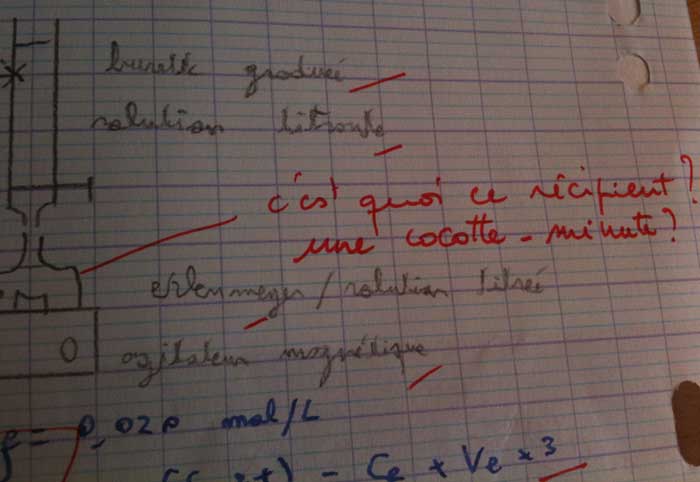 burette graduée
solution titrante
c'est quoi ce récipient?
une cocotte-minute?
erlenmeyer/solution titrée
agitateur magnétique
0,020 mol/L
- Ce × Ve × 3